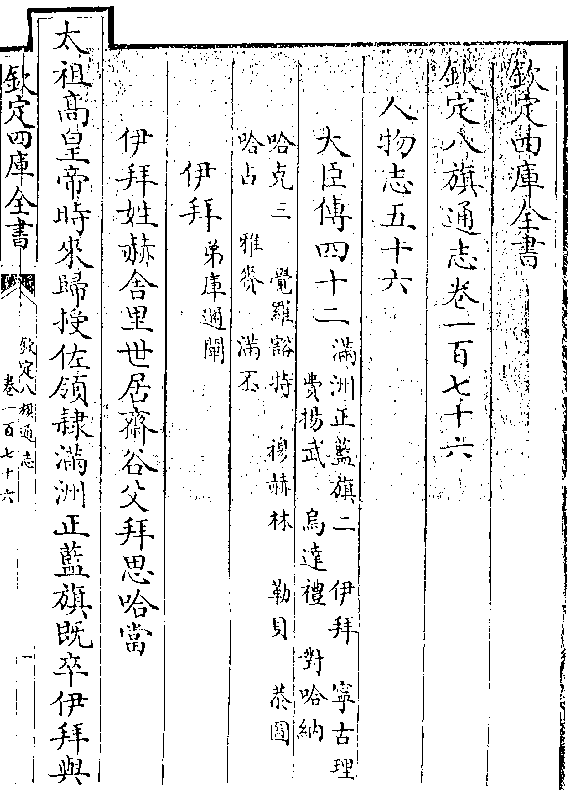 欽定四庫全書
欽定八旗通志卷一百七十六
人物志五十六
大臣傳四十二 滿洲正藍旗二 伊拜 寧古理
費揚武 烏達禮 對哈納
哈克三 覺羅谿特 穆赫林 勒貝 恭圖
哈占 雅賚 滿丕
伊拜 弟庫邇闡
伊拜姓赫舍里世居齋谷父拜思哈當
太祖高皇帝時來歸授佐領隷滿洲正藍旗既卒伊拜與
欽定四庫全書
欽定八旗通志
卷一百七十六
一